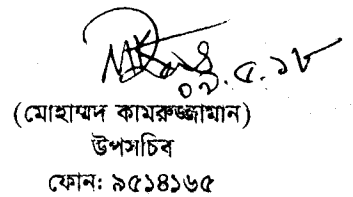 ০৯.৫.১৮
(মোহাম্মদ কামরুজ্জামান)
উপসচিব
ফোন: ৯৫১৪১৬৫